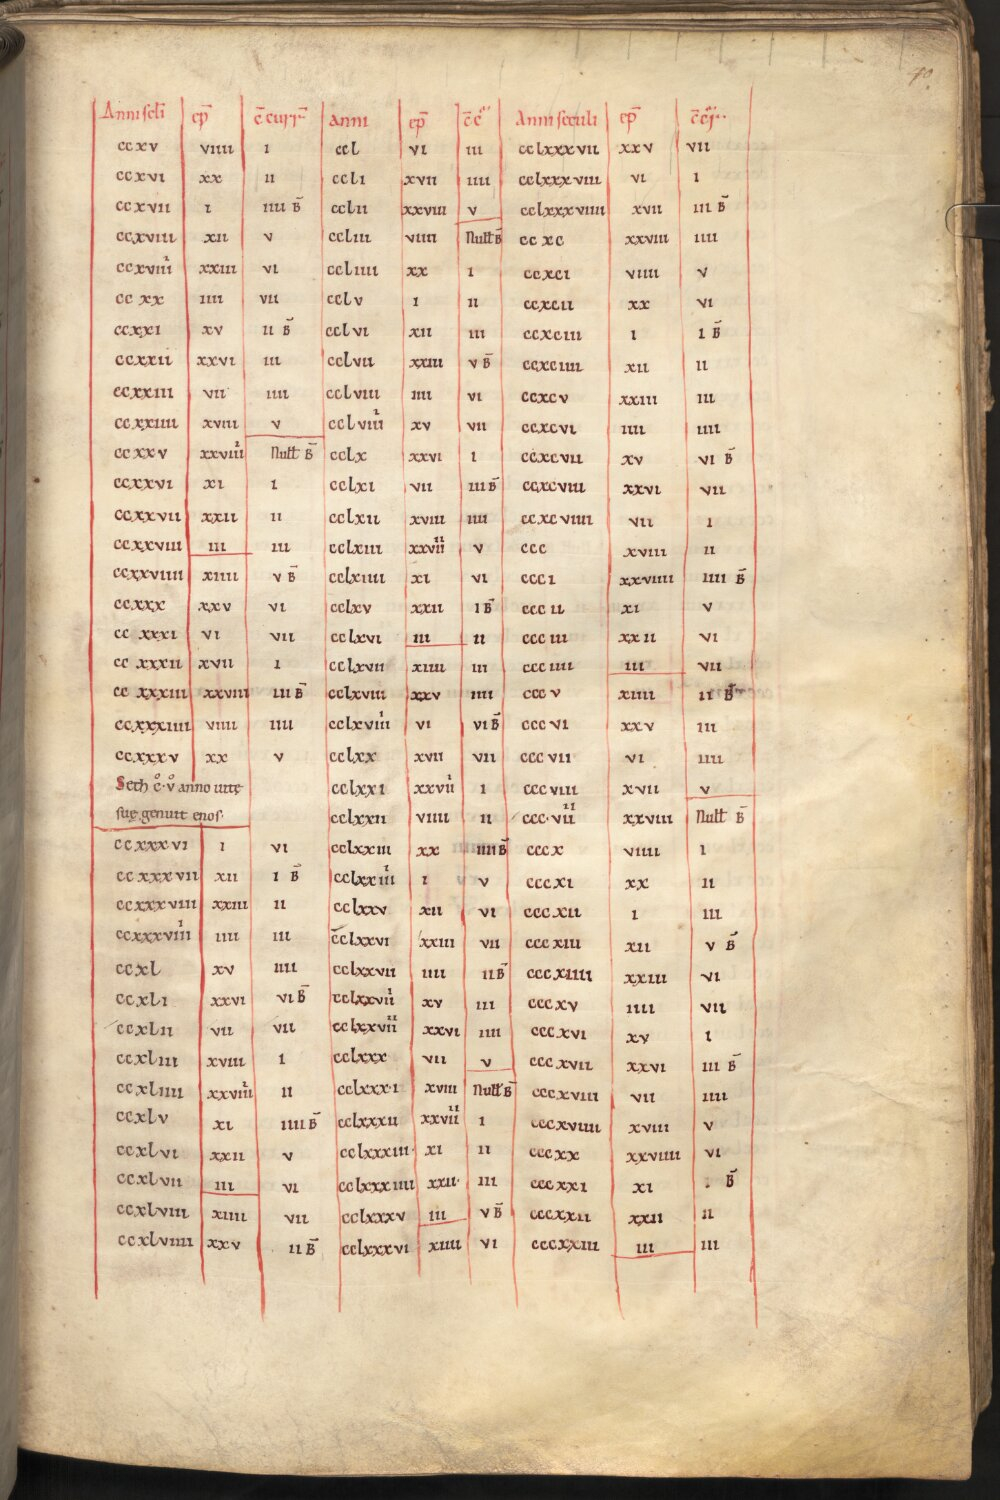 40
Anni scli ep̄ c̄curr̄
ccxv viiii i
ccxvi xx ii
ccxvii i iiii B̄
ccxviii xii v
ccxviiii xxiii vi
cc xx iiii vii
ccxxi xv ii B̄
ccxxii xxvi iii
ccxxiii vii iiii
ccxxiiii xviii v
ccxxv xxviiii Null B̄
ccxxvi xi i
ccxxvii xxii ii
ccxxviii iii iii
ccxxviiii xiiii v B̄
ccxxx xxv vi
cc xxxi vi vii
cc xxxii xvii i
cc xxxiii xxviii iii B̄
ccxxxiiii viiii iiii
ccxxxv xx v
Seth c̊·v̊ anno uitę
suę genuit enos·
ccxxxvi i vi
ccxxxvii xii i B̄
ccxxxviii xxiii ii
ccxxxviiii iiii iii
ccxl xv iiii
ccxli xxvi vi B̄
ccxlii vii vii
ccxliii xviii i
ccxliiii xxviiii ii
ccxlv xi iiii B̄
ccxlvi xxii v
ccxlvii iii vi
ccxlviii xiiii vii
ccxlviiii xxv ii B̄
Anni ep̄ c̄c̄
ccl vi iii
ccli xvii iiii
cclii xxviii v
ccliii viiii Null B̄
ccliiii xx i
cclv i ii
cclvi xii iii
cclvii xxiii v B̄
cclviii iiii vi
cclviiii xv vii
cclx xxvi i
cclxi vii iii B̄
cclxii xviii iiii
cclxiii xxviiii v
cclxiiii xi vi
cclxv xxii i B̄
cclxvi iii ii
cclxvii xiiii iii
cclxviii xxv iiii
cclxviiii vi vi B̄
cclxx xvii vii
cclxxi xxviii i
cclxxii viiii ii
cclxxiii xx iiii B̄
cclxxiiii i v
cclxxv xii vi
cclxxvi xxiii vii
cclxxvii iiii ii B̄
cclxxviii xv iii
cclxxviiii xxvi iiii
cclxxx vii v
cclxxx·i xviii Null B̄
cclxxxii xxviiii i
cclxxxiii· xi ii
cclxxxiiii xxii· iii
cclxxxv iii v B̄
cclxxxvi xiiii vi
Anni seculi ep̄ c̄c̄
cclxxxvii xxv vii
cclxxxviii vi i
cclxxxviiii xvii iii B̄
cc xc xxviii iiii
ccxci viiii v
ccxcii xx vi
ccxciii i i B̄
ccxciiii xii ii
ccxcv xxiii iii
ccxcvi iiii iiii
ccxcvii xv vi B̄
ccxcviii xxvi vii
ccxcviiii vii i
ccc xviii ii
ccci xxviiii iiii B̄
ccc ii xi v
ccc iii xxii vi
ccc iiii iii vii
ccc v xiiii ii B̄
ccc vi xxv iii
ccc vii vi iiii
ccc viii xvii v
ccc·viiii xxviii Null B̄
cccx viiii i
cccxi xx ii
cccxii i iii
cccxiii xii v B̄
cccxiiii xxiii vi
cccxv iiii vii
cccxvi xv i
cccxvii xxvi iii B̄
cccxviii vii iiii
cccxviiii xviii v
cccxx xxviiii vi
cccxxi xi . B̄
cccxxii xxii ii
cccxxiii iii iii